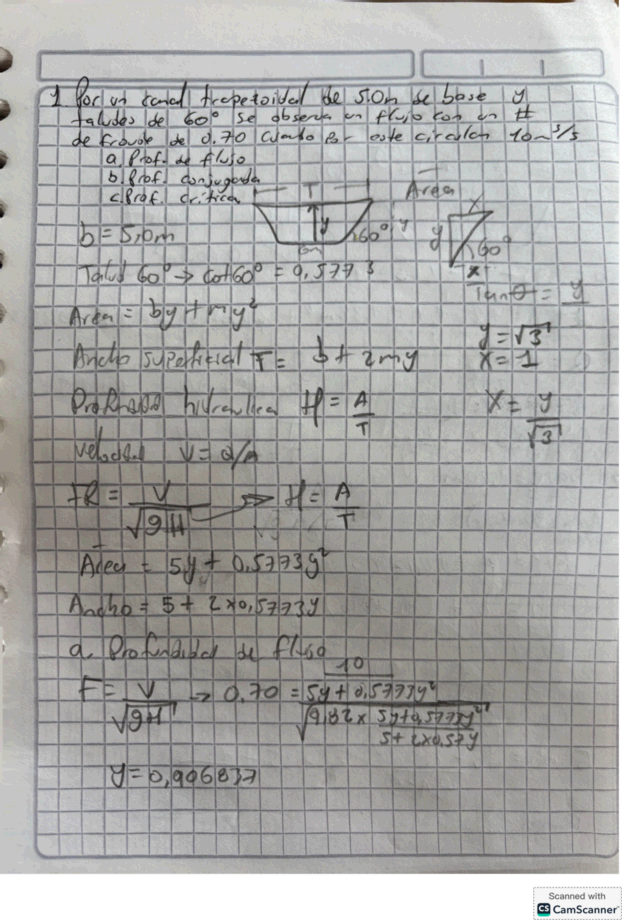 1 Por un canal trapezoidal de 5.0m de base y
taludes de 60° se observa un flujo con un #
de froude de 0.70 cuando por este circulan 10m³/s
a. Prof. de flujo
b. Prof. conjugada
c. Prof. critica
T
y
60°
y
Area
x
y
60°
x
b = 5,0m
Talud 60° → cot60° = 0,5773
Tanθ = y
Area = by + my²
y = √3
x = 1
Ancho superficial T = b + 2my
Profundidad hidraulica H = A/T
x = y/√3
Velocidad V = Q/A
FR = V/√gH → H = A/T
Area = 5y + 0,5773y²
Ancho = 5 + 2x0,5773y
a. Profundidad de flujo
F = V/√gH → 0.70 = 10/5y+0,5773y² / √9,82 x 5y+0,5773y²/5+2x0,57y
y = 0,906837
Scanned with
CS CamScanner